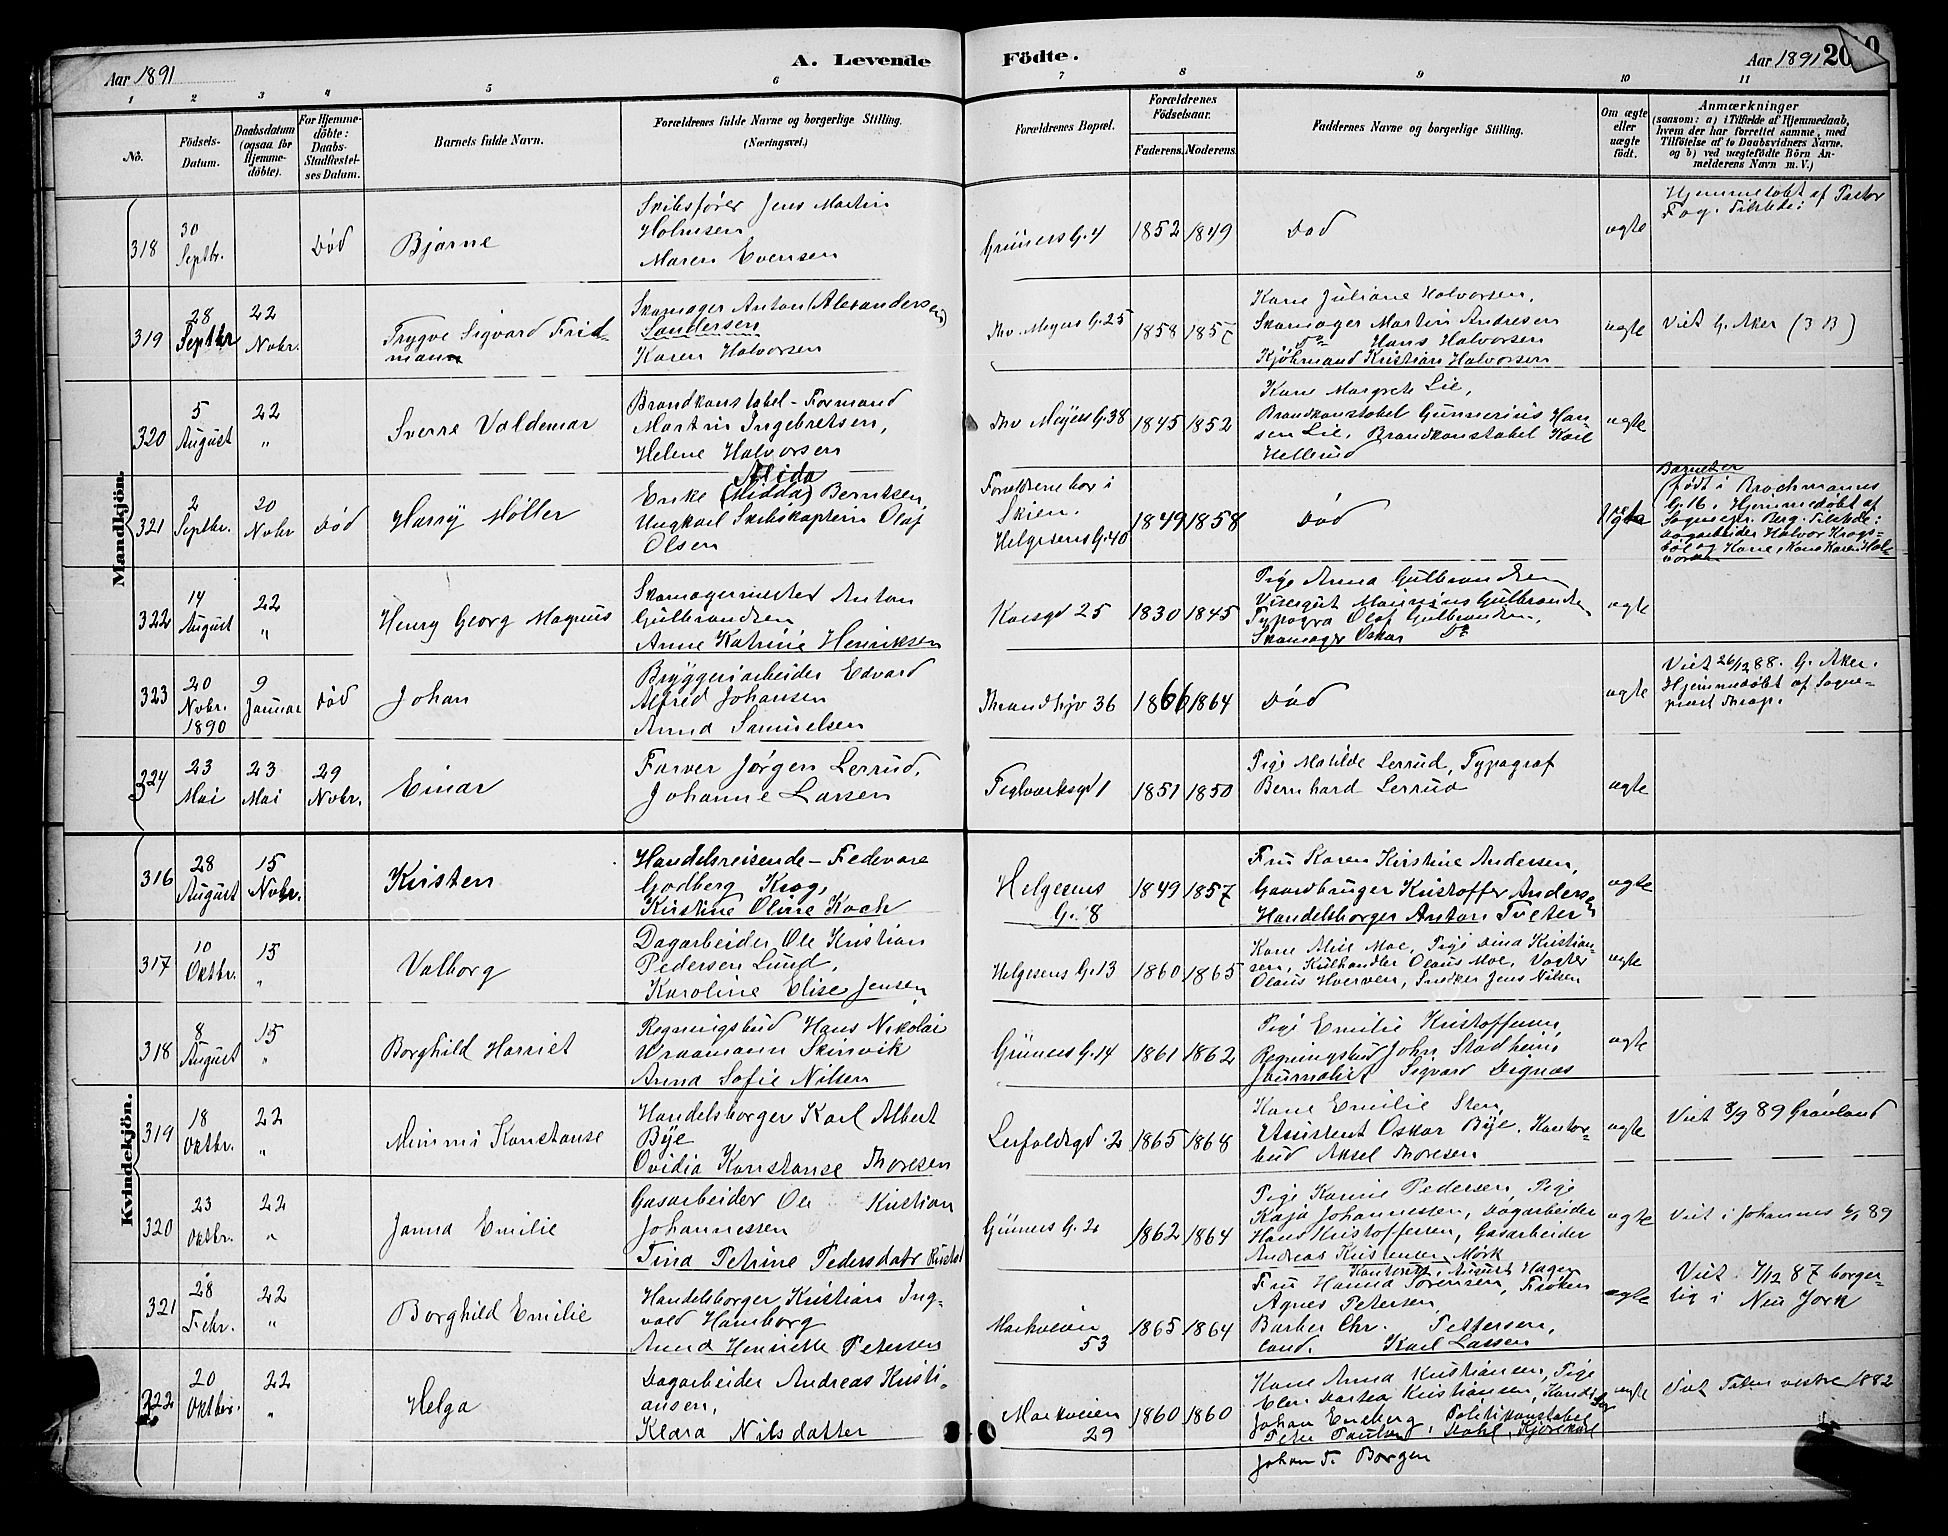 Aar 1891
A. Levende
Födte.
Aar 1891
20
1 2 3 4 5 6 7 8 9 10 11
No.
Födsels-
Datum.
Daabsdatum
(ogsaa for
Hjemme-
döbte).
For Hjemme-
döbte:
Daabs-
Stadfæstel-
ses Datum.
Barnets fulde Navn.
Forældrenes fulde Navne og borgerlige Stilling.
(Næringsvei.)
Forældrenes Bopæl.
Forældrenes
Födselsaar.
Faderens. Moderens.
Faddernes Navne og borgerlige Stilling.
Om ægte
eller
uægte
født.
Anmærkninger
(saasom: a) i Tilfælde af Hjemmedaab,
hvem der har forrettet samme, med
Tilföielse af to Daabsvidners Navne.
og b) ved uægtefödte Börn An-
melderens Navn m. V.)
Mandkjön.
318
30
Septbr.
Död
Bjarne
Skibsfører Jens Martin
Holmsen
Maren Evensen
Grüners G. 4
1852 1849
Död
ægte
Hjemmedøbt af Pastor
319
28
Septbr
22
Novbr.
Trygve Sigvard Frid-
mann
Skomager Anton (Alexandersen)
Sandersen
Karen Halvorsen
Thv. Meyers G. 25
1858 1857
Kone Juliane Halvorsen,
Skomager Martin Andresen
Do Hans Halvorsen
Kjöbmand Kristian Halvorsen
ægte
Viet G. Aker (3 B)
320
5
August
22
"
Sverre Valdemar
Brandkonstabel-Formand
Martin Ingebretsen,
Helene Halvorsen
Thv Meyers G. 38
1845 1852
Kone Margrete Lie,
Brandkonstabel Gunnerius Han-
sen Lie, Brandkonstabel Karl
Hellerud
ægte
321
2
Septbr.
20
Novbr
Död
Harry Møller
Alida
Enke (Midda) Berntsen
Ungkarl Skibskaptein Olaf
Olsen
Forældrene bor i
Skien.
Helgesens G. 40
1849 1858
Död
Uægte
Barnet er
født i Brochmanns
G. 16. Hjemmedøbt af
Sognepr. Berg. Tilstede:
322
14
August
22
"
Henry Georg Magnus
Skomagermester Anton
Gulbrandsen
Anne Katrine Henriksen
Korsgd 25
1830 1845
Pige Anna Gulbrandsen
Visergut Marinius Gulbrandsen
Typogra Olaf Gulbrandsen,
Skomager Oskar Do
ægte
323
20
Novbr.
1890
9
Januar
Död
Johan
Bryggeriarbeider Edvard
Alfred Johansen
Anna Samuelsen
Thrandhjv 36
1866 1864
Död
ægte
Viet 26/12 88. G. Aker.
Hjemmedøbt af Sogne-
præst Thrap.
324
23
Mai
23
Mai
29
Novbr.
Einar
Farver Jørgen Lerrud,
Johanne Larsen
Teglverksgd 1
1851 1850
Pige Matilde Lerrud, Typograf
Bernhard Lerrud
ægte
Kvindekjön.
316
28
August
15
Novbr.
Kirsten
Handelsreisende - Fedevare
Godberg Krog,
Kirstine Oline Koch
Helgesens
G. 8
1849 1857
Fru Karen Kirstine Andersen,
Gaardbruger Kristoffer Andersen
Handelsborger Anton Tveter
ægte
317
10
Oktbr.
15
"
Valborg
Dagarbeider Ole Kristian
Pedersen Lund,
Karoline Elise Jensen
Helgesens G. 13
1860 1865
Kone Alise Moe, Pige Dina Kristian-
sen, Kulhandler Olaus Moe, Vagter
Olaus Hverven, Snedker Jens Nilsen
ægte
318
8
August
15
"
Borghild Harriet
Regningsbud Hans Nikolai
Wraamann Skinvik
Anna Sofie Nilsen
Grüners G. 14
1861 1862
Pige Emilie Kristoffersen,
Regningsbud John Stadheim
Journalist Sigvard Dignæs
ægte
319
18
Oktbr.
22
"
Mimmi Konstanse
Handelsborger Karl Albert
Bye
Ovidia Konstanse Thoresen
Leifaldsgd. 2
1865 1868
Kone Emilie Sten,
Assistent Oskar Bye. Kontor-
bud Aksel Thoresen
ægte
Viet 8/9 89 Grønland
320
23
Oktbr.
22
"
Janna Emilie
Gasarbeider Ole Kristian
Johannessen
Tina Petrine Pedersdatr
Grüners G. 2
1862 1864
Pige Karine Pedersen, Pige
Kaja Johannessen, Dagarbeider
Hans Kristoffersen, Gasarbeider
Andreas Kristensen Mørk
ægte
Viet i Johannes 6/1 89
321
28
Febr.
22
"
Borghild Emilie
Handelsborger Kristian Ing-
vald Hamborg
Anna Henriette Petersen
Markveien
53
1865 1864
Kontorist August Hagen
Fru Hanna Sørensen, Frøken
Agnes Petersen,
Barber Chr. Pettersen,
cand. Karl Larsen
ægte
Viet 7/12 87 borger-
lig i New York
322
20
Oktbr.
22
"
Helga
Dagarbeider Andreas Kristi-
ansen,
Klara Nilsdatter
Markveien
29
1860 1860
Kone Anna Kristiansen, Pige
Elen Dortea Kristiansen,
Johan Eneberg, Politikonstabel
Peter Paulsen Dahl, Kjørekarl
Johan F. Borgen
ægte
Viet Toten vestre 1882